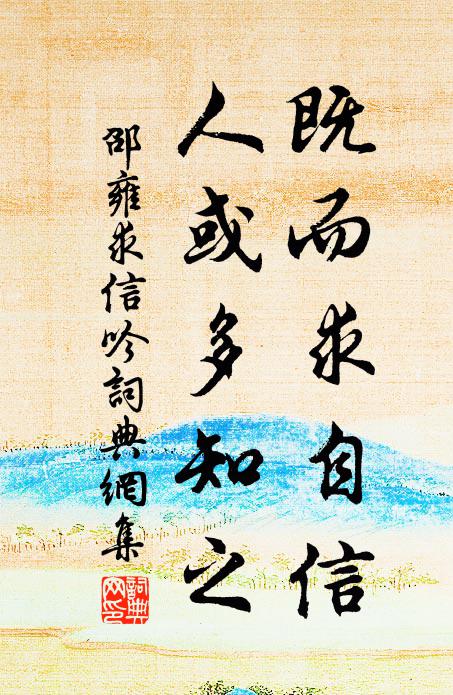 既而求自信
人或多知之
邵雍求信吟詞典網集
詞典
网印